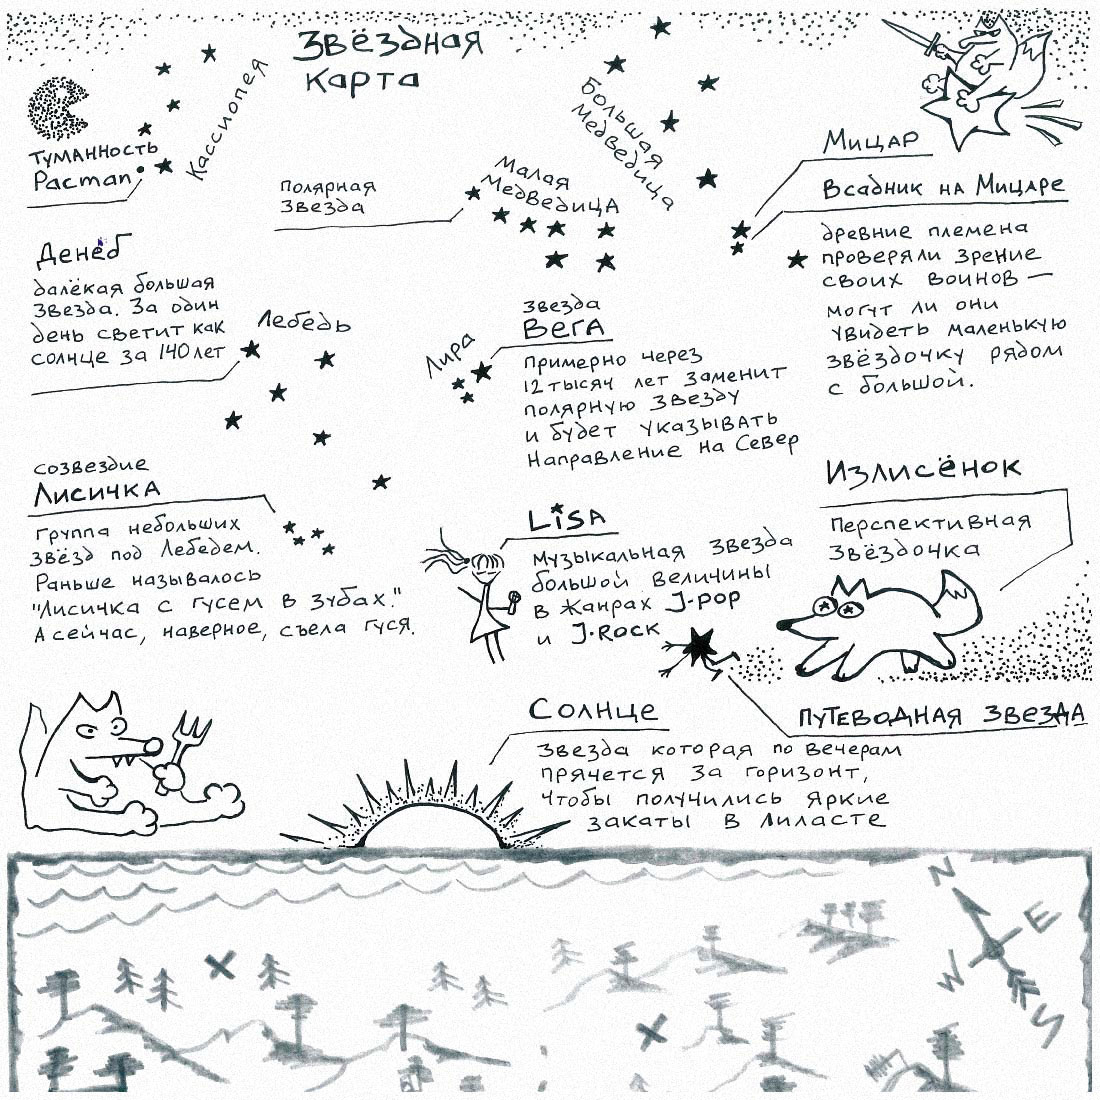 Звёздная
карта
Кассиопея
Туманность
Pacman
Большая
Медведица
Малая
Медведица
Полярная
Звезда
Мицар
Всадник на Мицаре
древние племена
проверяли зрение
своих воинов —
могут ли они
увидеть маленькую
звёздочку рядом
с большой.
Денеб
далёкая большая
звезда. За один
день светит как
солнце за 140 лет
Лебедь
Лира
звезда
Вега
примерно через
12 тысяч лет заменит
полярную звезду
и будет указывать
направление на Север
созвездие
Лисичка
группа небольших
звёзд под Лебедем.
Раньше называлось
"Лисичка с гусем в зубах."
А сейчас, наверное, съела гуся.
LiSA
Музыкальная звезда
большой величины
в жанрах J-POP
и J-ROCK
Излисёнок
Перспективная
звёздочка
Путеводная звезда
Солнце
Звезда которая по вечерам
прячется за горизонт,
чтобы получились яркие
закаты в Лиласте
N
E
W
S